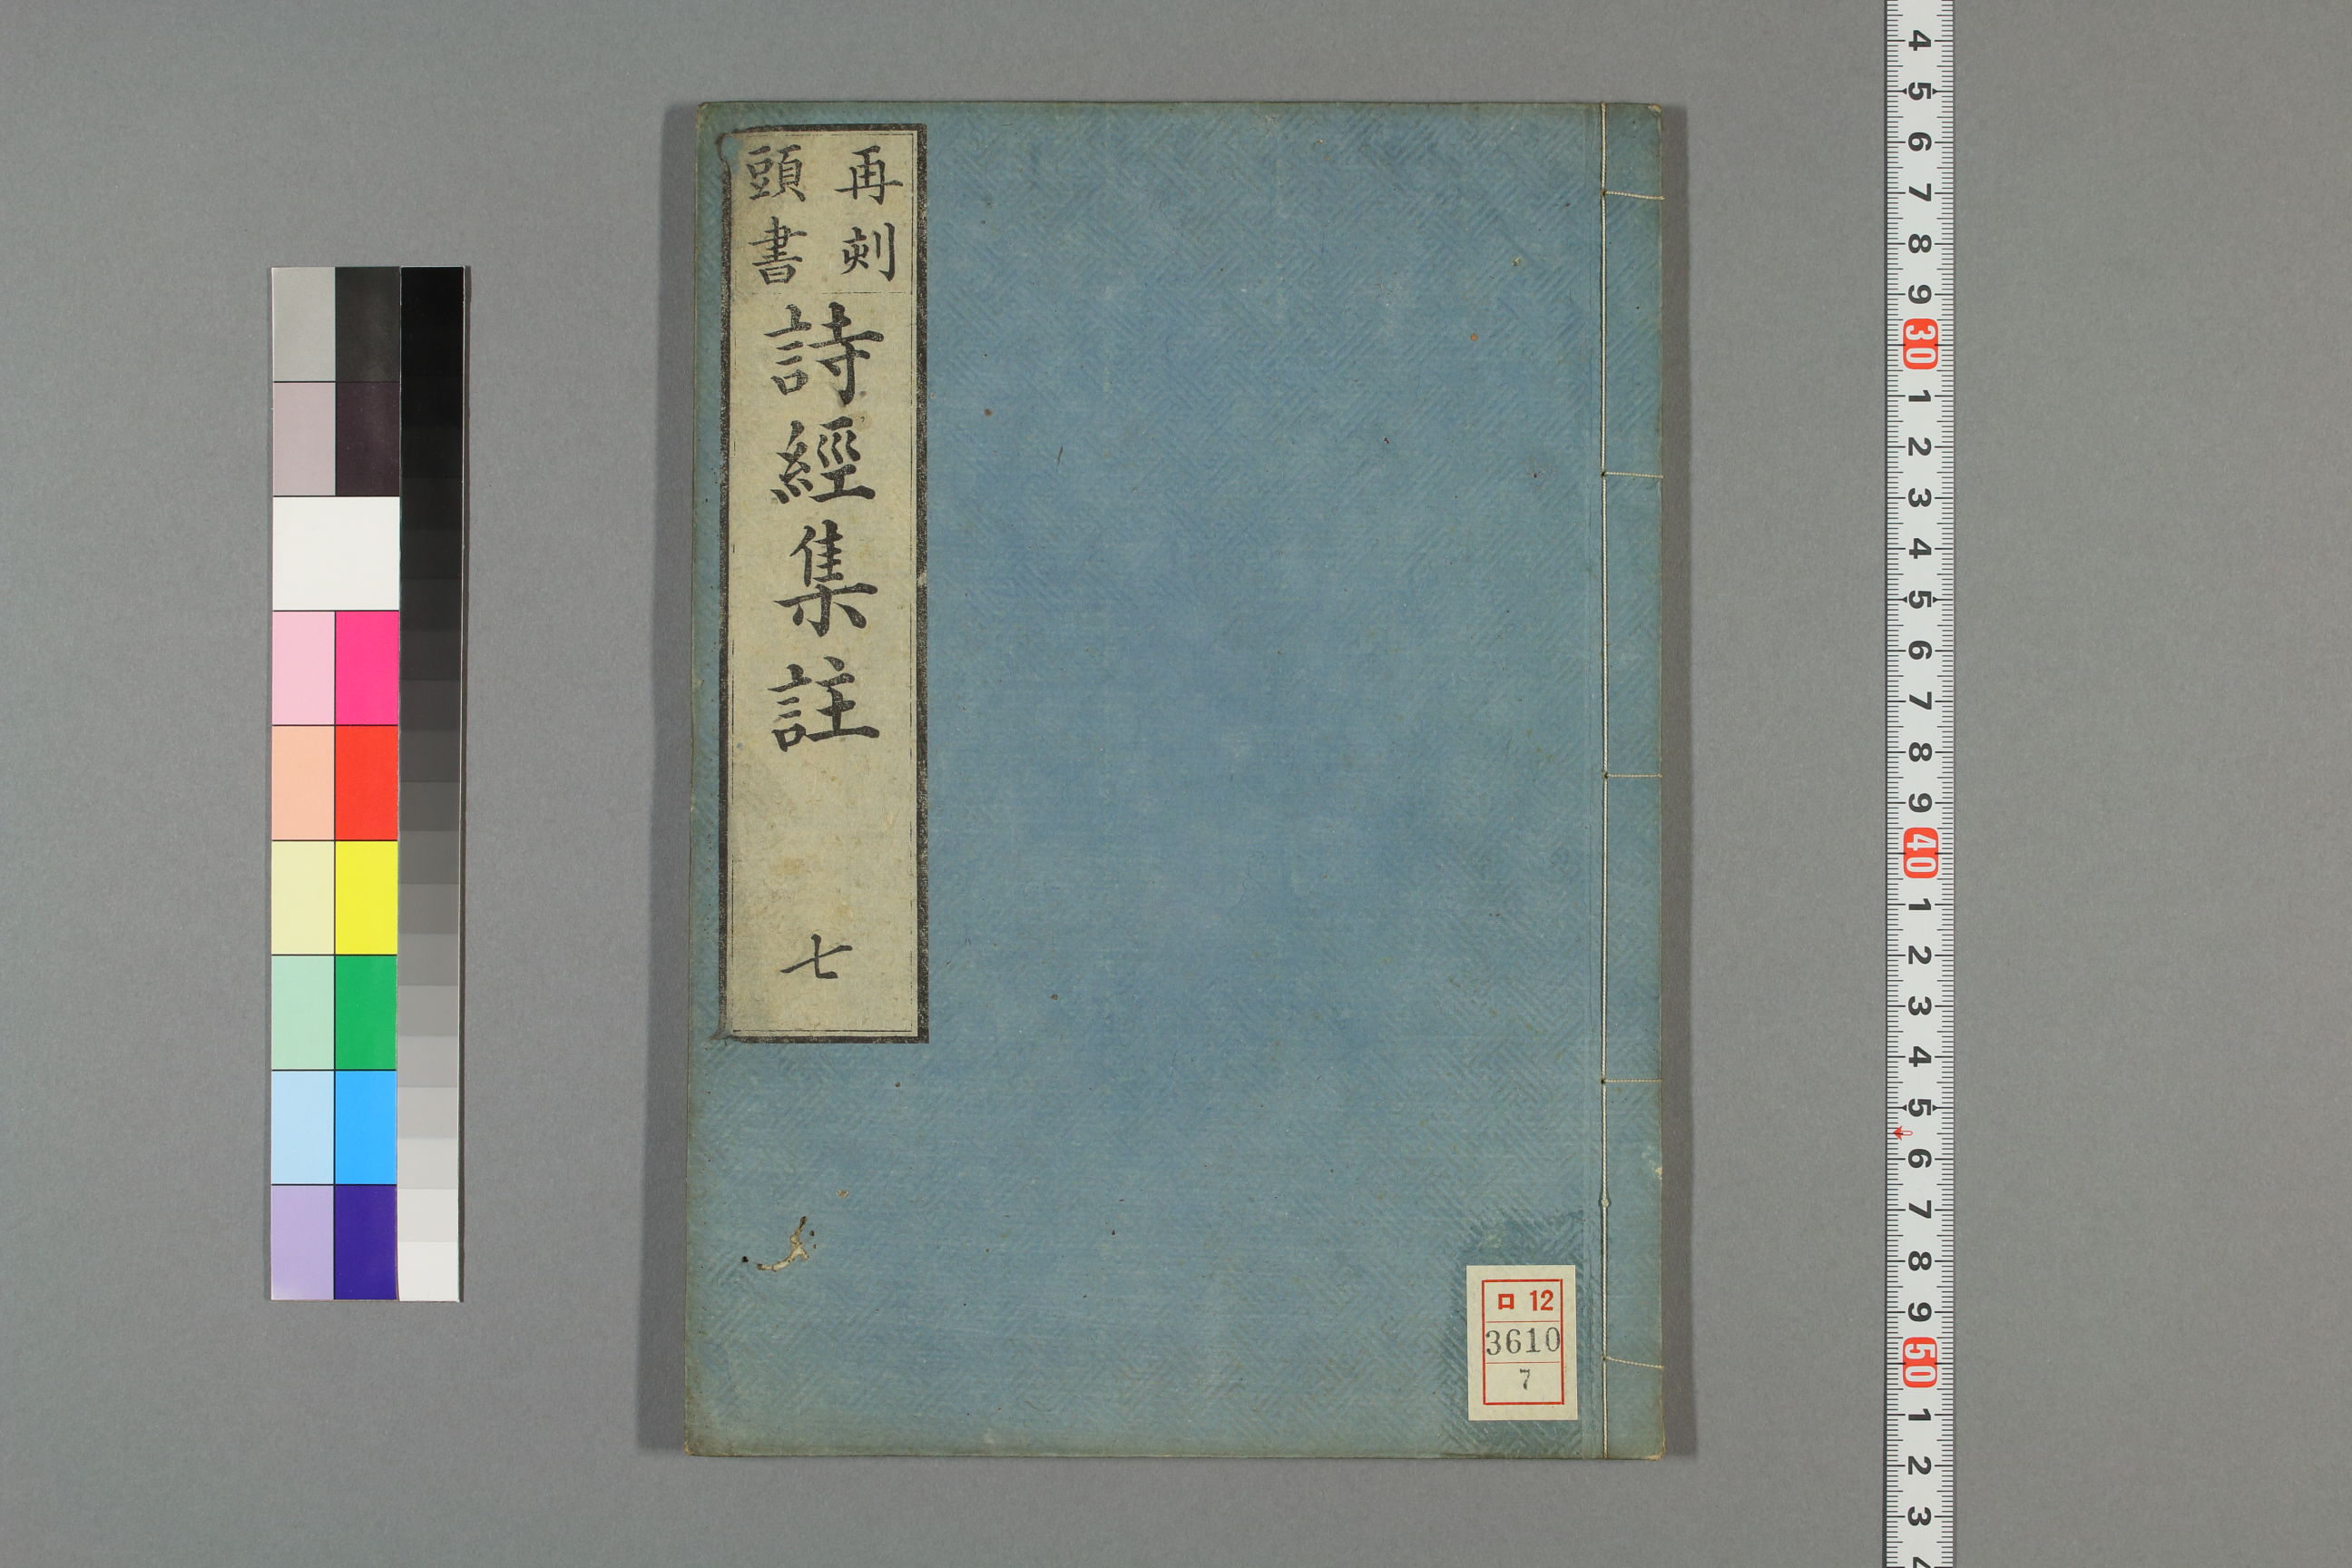 再刻
頭書
詩經集註
七
ロ 12
3610
7
4
5
6
7
8
9
30
1
2
3
4
5
6
7
8
9
40
1
2
3
4
5
6
7
8
9
50
1
2
3